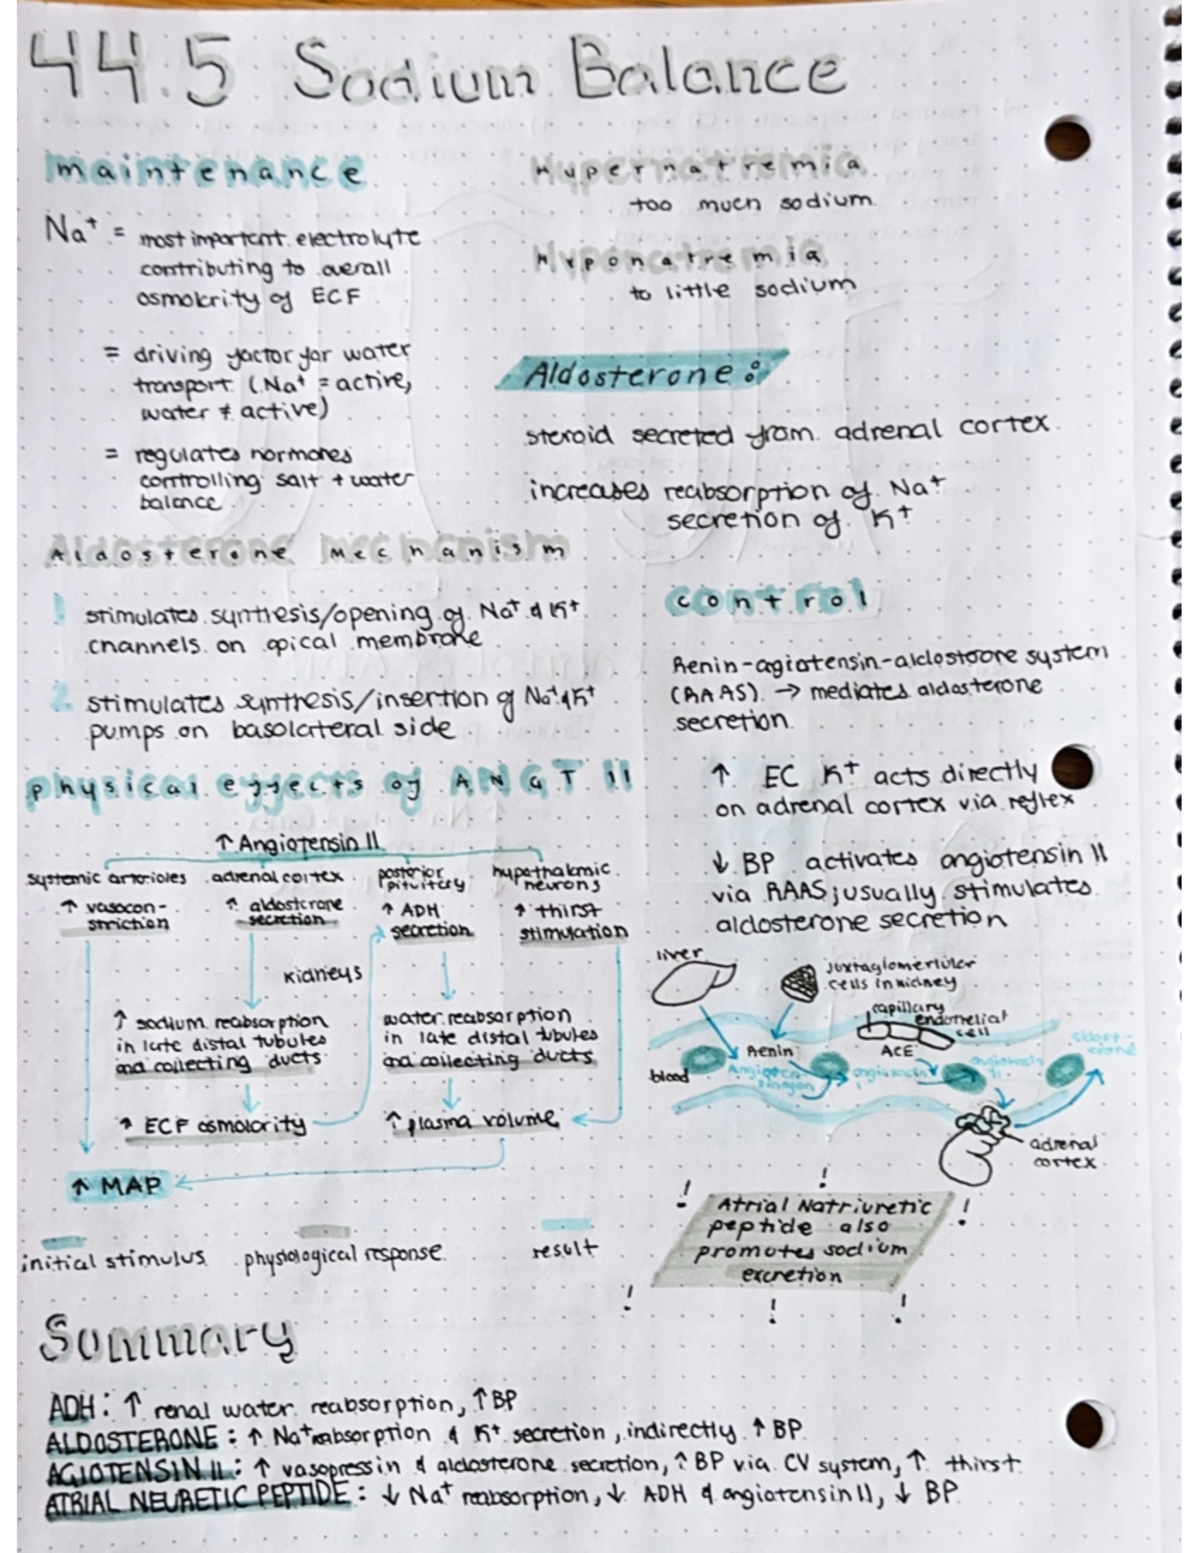 44.5 Sodium Balance
maintenance
Na⁺ = most important electrolyte
contributing to overall
osmolarity of ECF
= driving factor for water
transport (Na⁺ = active,
water ≠ active)
= regulates hormones
controlling salt + water
balance
Hypernatremia
too much sodium
Hyponatremia
to little sodium
Aldosterone:
steroid secreted from adrenal cortex
increases reabsorption of Na⁺
secretion of K⁺
Aldosterone Mechanism
1. stimulates synthesis/opening of Na⁺ & K⁺
channels on apical membrane
2. stimulates synthesis/insertion of Na⁺ & K⁺
pumps on basolateral side
control
Renin-agiotensin-aldostoore system
(RAAS) → mediates aldosterone
secretion
↑ EC K⁺ acts directly
on adrenal cortex via reflex
↓ BP activates angiotensin II
via RAAS; usually stimulates
aldosterone secretion
physical effects of ANGT II
↑ Angiotensin II
systemic arterioles
↑ vasocon-
striction
adrenal cortex
↑ aldosterone
secretion
posterior
pituitary
↑ ADH
secretion
hypothalmic
neurons
↑ thirst
stimulation
kidneys
↑ sodium reabsorption
in late distal tubules
and collecting ducts
water reabsorption
in late distal tubules
and collecting ducts
↑ ECF osmolarity
↑ plasma volume
↑ MAP
initial stimulus physiological response result
liver
juxtaglomerlular
cells in kidney
capillary
endothelial
cell
Renin
ACE
blood
adrenal
cortex
Atrial Natriuretic
peptide also
promotes sodium
excretion
Summary
ADH: ↑ renal water reabsorption, ↑ BP
ALDOSTERONE: ↑ Na⁺ reabsorption & K⁺ secretion, indirectly ↑ BP
AGIOTENSIN II: ↑ vasopressin & aldosterone secretion, ↑ BP via CV system, ↑ thirst
ATRIAL NEURETIC PEPTIDE: ↓ Na⁺ reabsorption, ↓ ADH & angiotensin II, ↓ BP